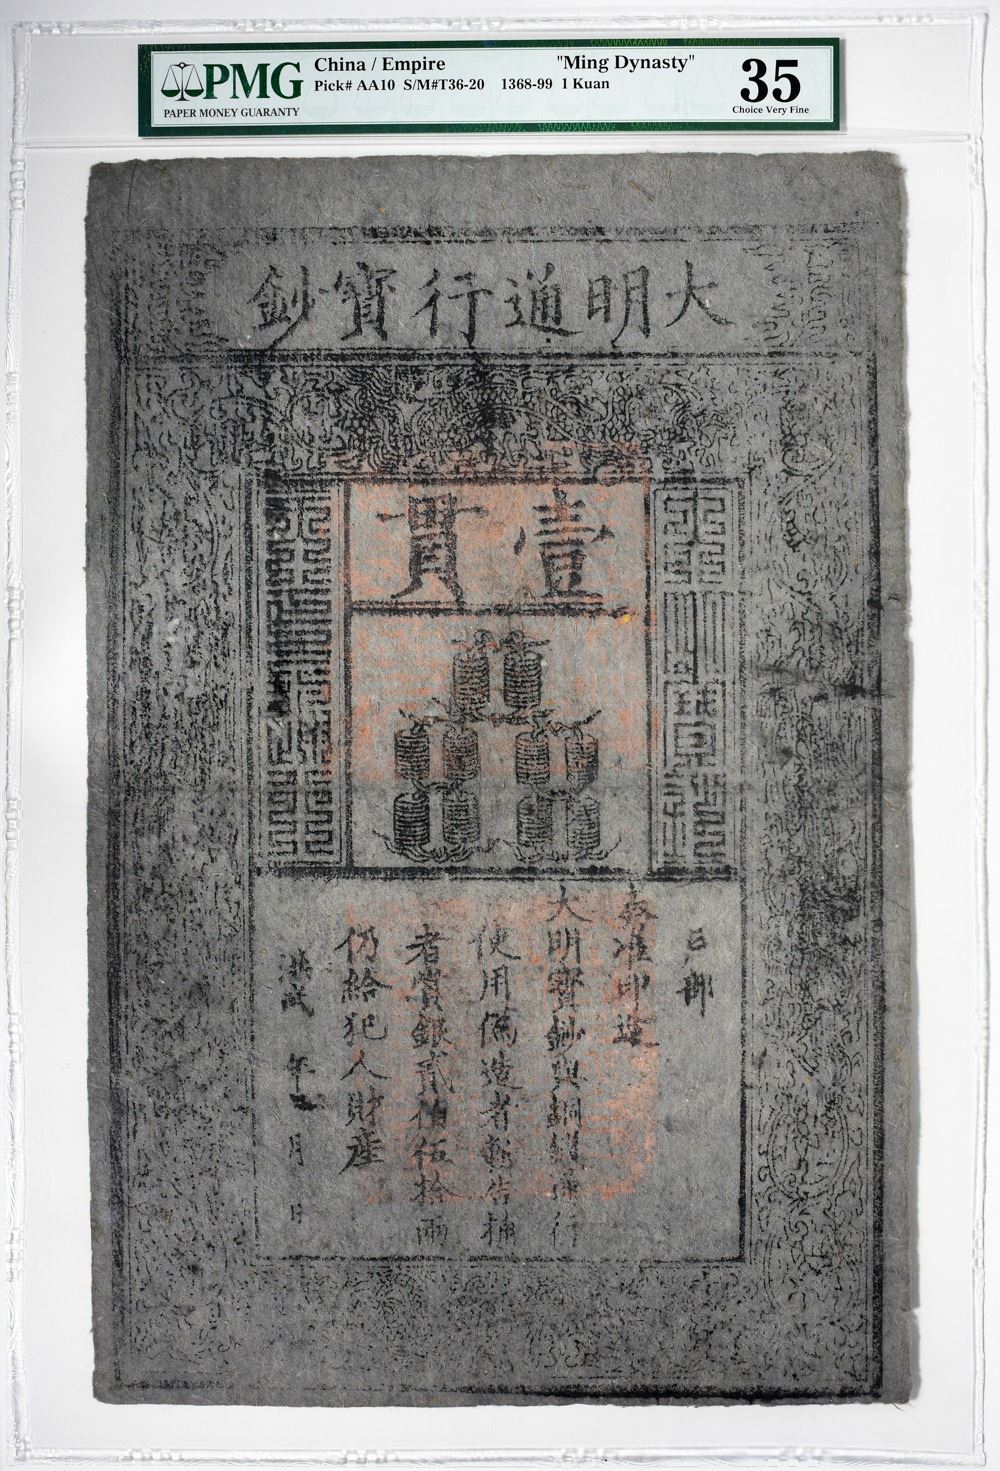 PMG
PAPER MONEY GUARANTY
China / Empire "Ming Dynasty"
Pick# AA10 S/M#T36-20 1368-99 1 Kuan
35
Choice Very Fine
大明通行寶鈔
壹貫
戶部
奏准印造
大明寶鈔與銅錢通行
使用偽造者斬告捕
者賞銀貳伯伍拾兩
仍給犯人財產
洪武 年 月 日